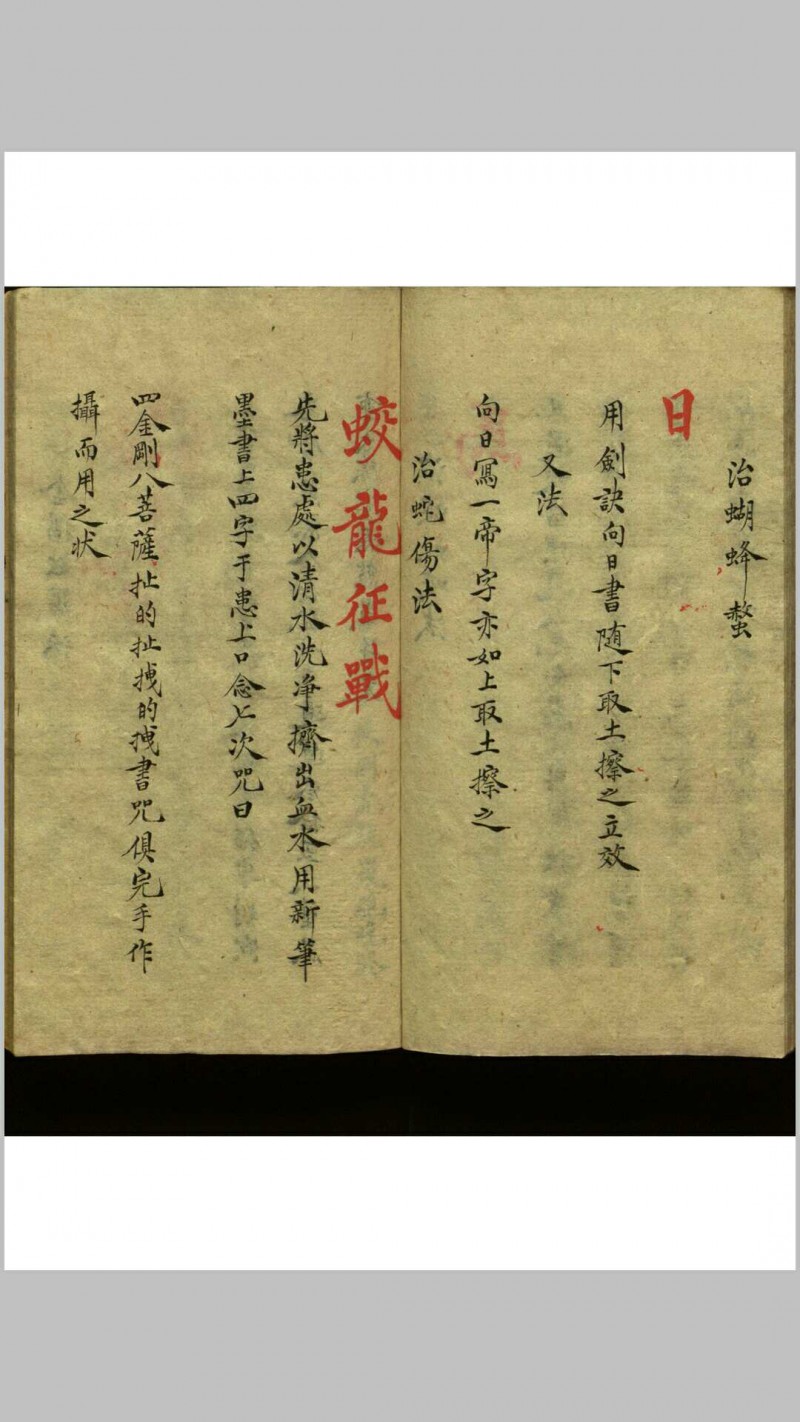 治蝴蜂螫
日
用劍訣向日書随下取土擦之立效
又法
向日寫一帝字亦如上取土擦之
治蛇傷法
蛟龍征戰
先將患處以清水洗净擠出血水用新筆
墨書上四字于患上口念七次咒曰
四金剛八菩薩扯的扯拽的拽書咒俱完手作
攝而用之状